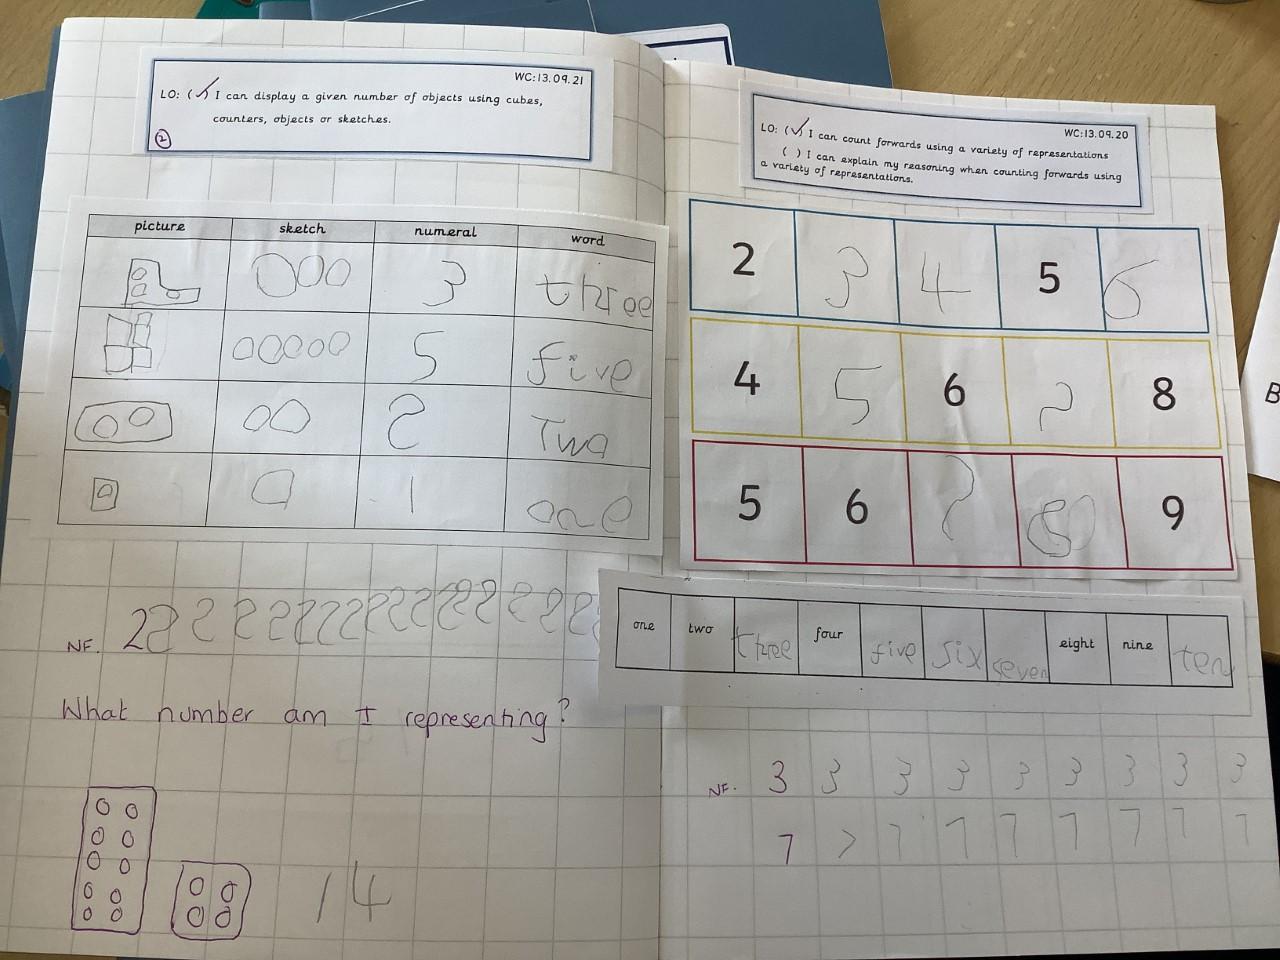 WC:13.09.21
LO: (✓) I can display a given number of objects using cubes,
counters, objects or sketches.
2
picture sketch numeral word
3 three
5 five
2 Two
1 one
NF. 2 2 2 2 2 2 2 2 2 2 2 2 2 2 2
What number am I representing?
14
WC:13.09.20
LO: (✓) I can count forwards using a variety of representations
( ) I can explain my reasoning when counting forwards using
a variety of representations.
2 3 4 5 6
4 5 6 7 8
5 6 7 8 9
one two three four five six seven eight nine ten
NF. 3 3 3 3 3 3 3 3 3
7 7 7 7 7 7 7 7 7
B